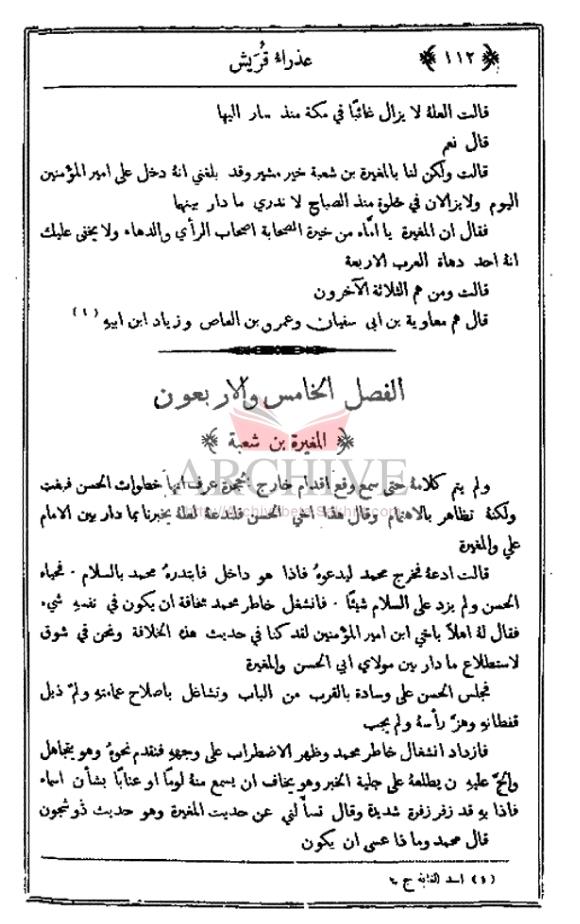 ﴿ ١١٢ ﴾ عذراء قُرَيش
قالت العلهُ لا يزال غائبًا في مكة منذ سار اليها
قال نعم
قالت ولكن لنا بالمغيرة بن شعبة خير مشير وقد بلغني انهُ دخل على امير المؤمنين
اليوم ولا يزالان في خلوة منذ الصباح لا ندري ما دار بينها
فقال ان المغيرة يا امّاه من خيرة الصحابة اصحاب الرأي والدهاء ولا يخفى عليك
انهُ احد دهاة العرب الاربعة
قالت ومن هم الثلاثة الآخرون
قال هم معاوية بن ابي سفيان وعمرو بن العاص وزياد ابن ابيهِ (١)
الفصل الخامس والاربعون
﴿ المغيرة بن شعبة ﴾
ARCHIVE
ولم يتم كلامهُ حتى سمع وقع اقدام خارج الحجرة عرف انها خطوات الحسن فبغت
ولكنهُ تظاهر بالاهتمام وقال هذا اخي الحسن فلندعهُ لعلهُ يخبرنا بما دار بين الامام
علي والمغيرة
قالت ادعهُ فخرج محمد ليدعوهُ فاذا هو داخل فابتدرهُ محمد بالسلام . فحياه
الحسن ولم يزد على السلام شيئًا . فانشغل خاطر محمد مخافة ان يكون في نفسهِ شيء
فقال لهُ اهلًا باخي ابن امير المؤمنين لقد كنا في حديث هذه الخلافة ونحن في شوق
لاستطلاع ما دار بين مولاي ابي الحسن والمغيرة
فجلس الحسن على وسادة بالقرب من الباب وتشاغل باصلاح عمامتهِ ولمّ ذيل
قفطانهِ وهزّ رأسهُ ولم يجب
فازداد انشغال خاطر محمد وظهر الاضطراب على وجههِ فتقدم نحوهُ وهو يتجاهل
والحّ عليهِ ن يطلعهُ على جلية الخبر وهو يخاف ان يسمع منهُ لومًا او عتابًا بشأن اسماء
فاذا بهِ قد زفر زفرة شديدة وقال تسألني عن حديث المغيرة وهو حديث ذو شجون
قال محمد وما ذا عسى ان يكون
(١) اسد الغابة ج